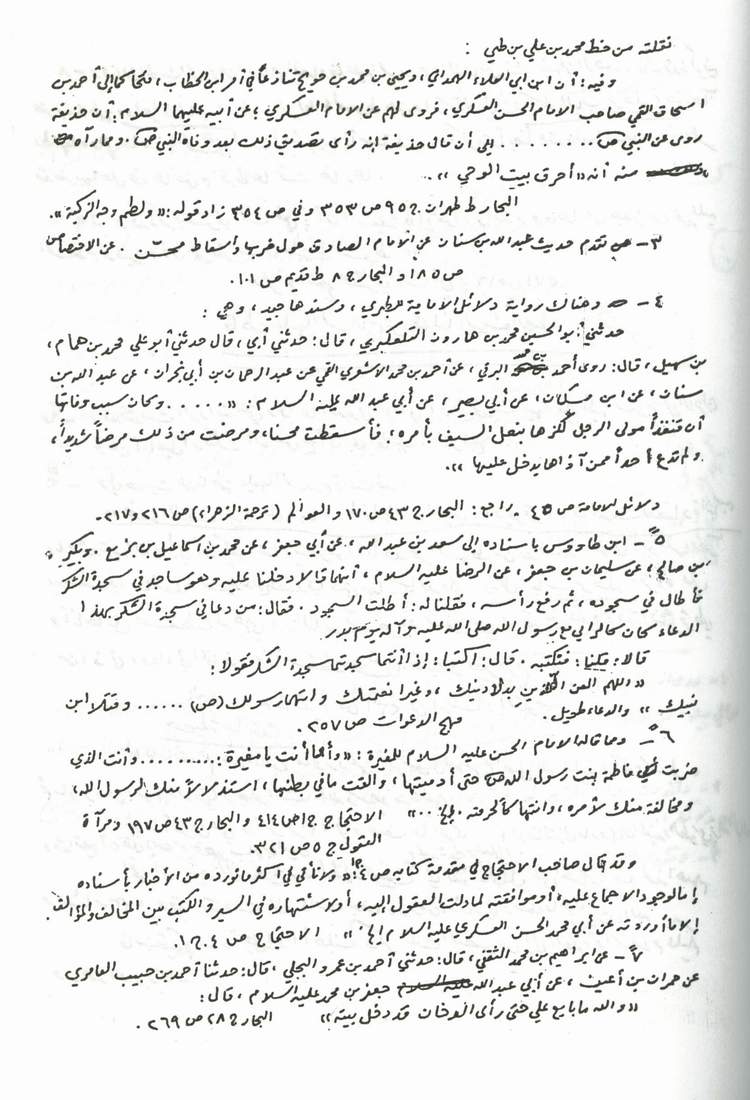 نقلته من خط محمد بن علي بن طي :
وفيه : أن ابن أبي العلاء الهمداني ، ويحيى بن محمد بن حويج تنازعا في أمر ابن الخطاب ، فتحاكما إلى أحمد بن
اسحاق القمي صاحب الامام الحسن العسكري ، فروى لهم عن الامام العسكري ؛ عن أبيه عليهما السلام : أن حذيفة
روى عن النبي ص ........ إلى أن قال حذيفة إنه رأى تصديق ذلك بعد وفاة النبي ص . ومما رآه
منه أنه « أحرق بيت الوحي » ..
البحار ط طهران ج ٩٥ ص ٣٥٣ وفي ص ٣٥٤ زاد قوله : « ولطم وجه الزكية » .
٣ – تقدم حديث عبد الله بن سنان عن الامام الصادق حول ضربها واسقاط محسّن . عن الاختصاص
ص ١٨٥ والبحار ج ٨ ط قديم ص ١٠١ .
٤ – وهناك رواية دلائل الامامة للطبري ، وسندها جيد ، وهي :
حدثني أبو الحسين محمد بن هارون التلعكبري ، قال : حدثني أبي ، قال حدثني أبو علي محمد بن همام ،
بن سهيل ، قال : روى أحمد بن محمد البرقي ، عن أحمد بن محمد الاشعري القمي عن عبد الرحمان بن أبي نجران ، عن عبد الله بن
سنان ، عن ابن مسكان ، عن أبي بصير ، عن أبي عبد الله عليه السلام : « ..... وكان سبب وفاتها
أن قنفذاً مولى الرجل لكزها بنعل السيف بأمره ؛ فأسقطت محسنا ، ومرضت من ذلك مرضاً شديداً ،
ولم تدع أحداً ممن آذاها يدخل عليها » .
دلائل الامامة ص ٤٥ . راجع : البحار ج ٤٣ ص ١٧٠ والعوالم ( ترجمة الزهراء ) ص ٢١٦ و ٢١٧ .
٥ – ابن طاووس باسناده إلى سعد بن عبد الله ، عن أبي جعفر ، عن محمد بن اسماعيل بن بزيع . وبكر
بن صالح ، عن سليمان بن جعفر ، عن الرضا عليه السلام ، أنهما قالا دخلنا عليه وهو ساجد في سجدة الشكر
فأطال في سجوده ، ثم رفع رأسه ، فقلنا له : أطلت السجود . فقال : من دعا في سجدة الشكر بهذا
الدعاء كان كالرامي مع رسول الله صلى الله عليه وآله يوم بدر
قالا : قلنا : فنكتبه . قال : اكتبا : إذا أنتما سجدتما سجدة الشكر فقولا :
« اللهم العن اللذين بدلا دينك ، وغيرا نعمتك واتهما رسولك (ص) ...... وقتلا ابن
نبيك » والدعاء طويل . مهج الدعوات ص ٢٥٧ .
٦ – ومما قاله الامام الحسن عليه السلام للمغيرة : « وأما أنت يا مغيرة : ......... وأنت الذي
ضربت فاطمة بنت رسول الله ص حتى أدميتها ، والقت ما في بطنها ، استذلالاً منك لرسول الله ،
ومخالفة منك لأمره ، وانتهاكاً لحرمته . إلخ .. » الاحتجاج ج ١ ص ٤١٤ والبحار ج ٤٣ ص ١٩٧ ومرآة
العقول ج ٥ ص ٣٢١ .
وقد قال صاحب الاحتجاج في مقدمة كتابه ص ٤ ج ١ : « ولا نأتي في أكثر ما نورده من الأخبار بأسناده
إما لوجود الاجماع عليه ، أو موافقته لما دلت العقول إليه ، أو لاشتهاره في السير والكتب بين المخالف والمؤالف .
إلا ما أوردته عن أبي محمد الحسن العسكري عليه السلام إلخ » الاحتجاج ص ٤ ج ١ .
٧ – عن ابراهيم بن محمد الثقفي ، قال : حدثني أحمد بن عمرو البجلي ، قال : حدثنا أحمد بن حبيب العامري
عن حمران بن أعين ، عن أبي عبد الله جعفر بن محمد عليه السلام ، قال :
« والله ما بايع علي حتى رأى الدخان قد دخل بيته » البحار ج ٢٨ ص ٢٦٩ .